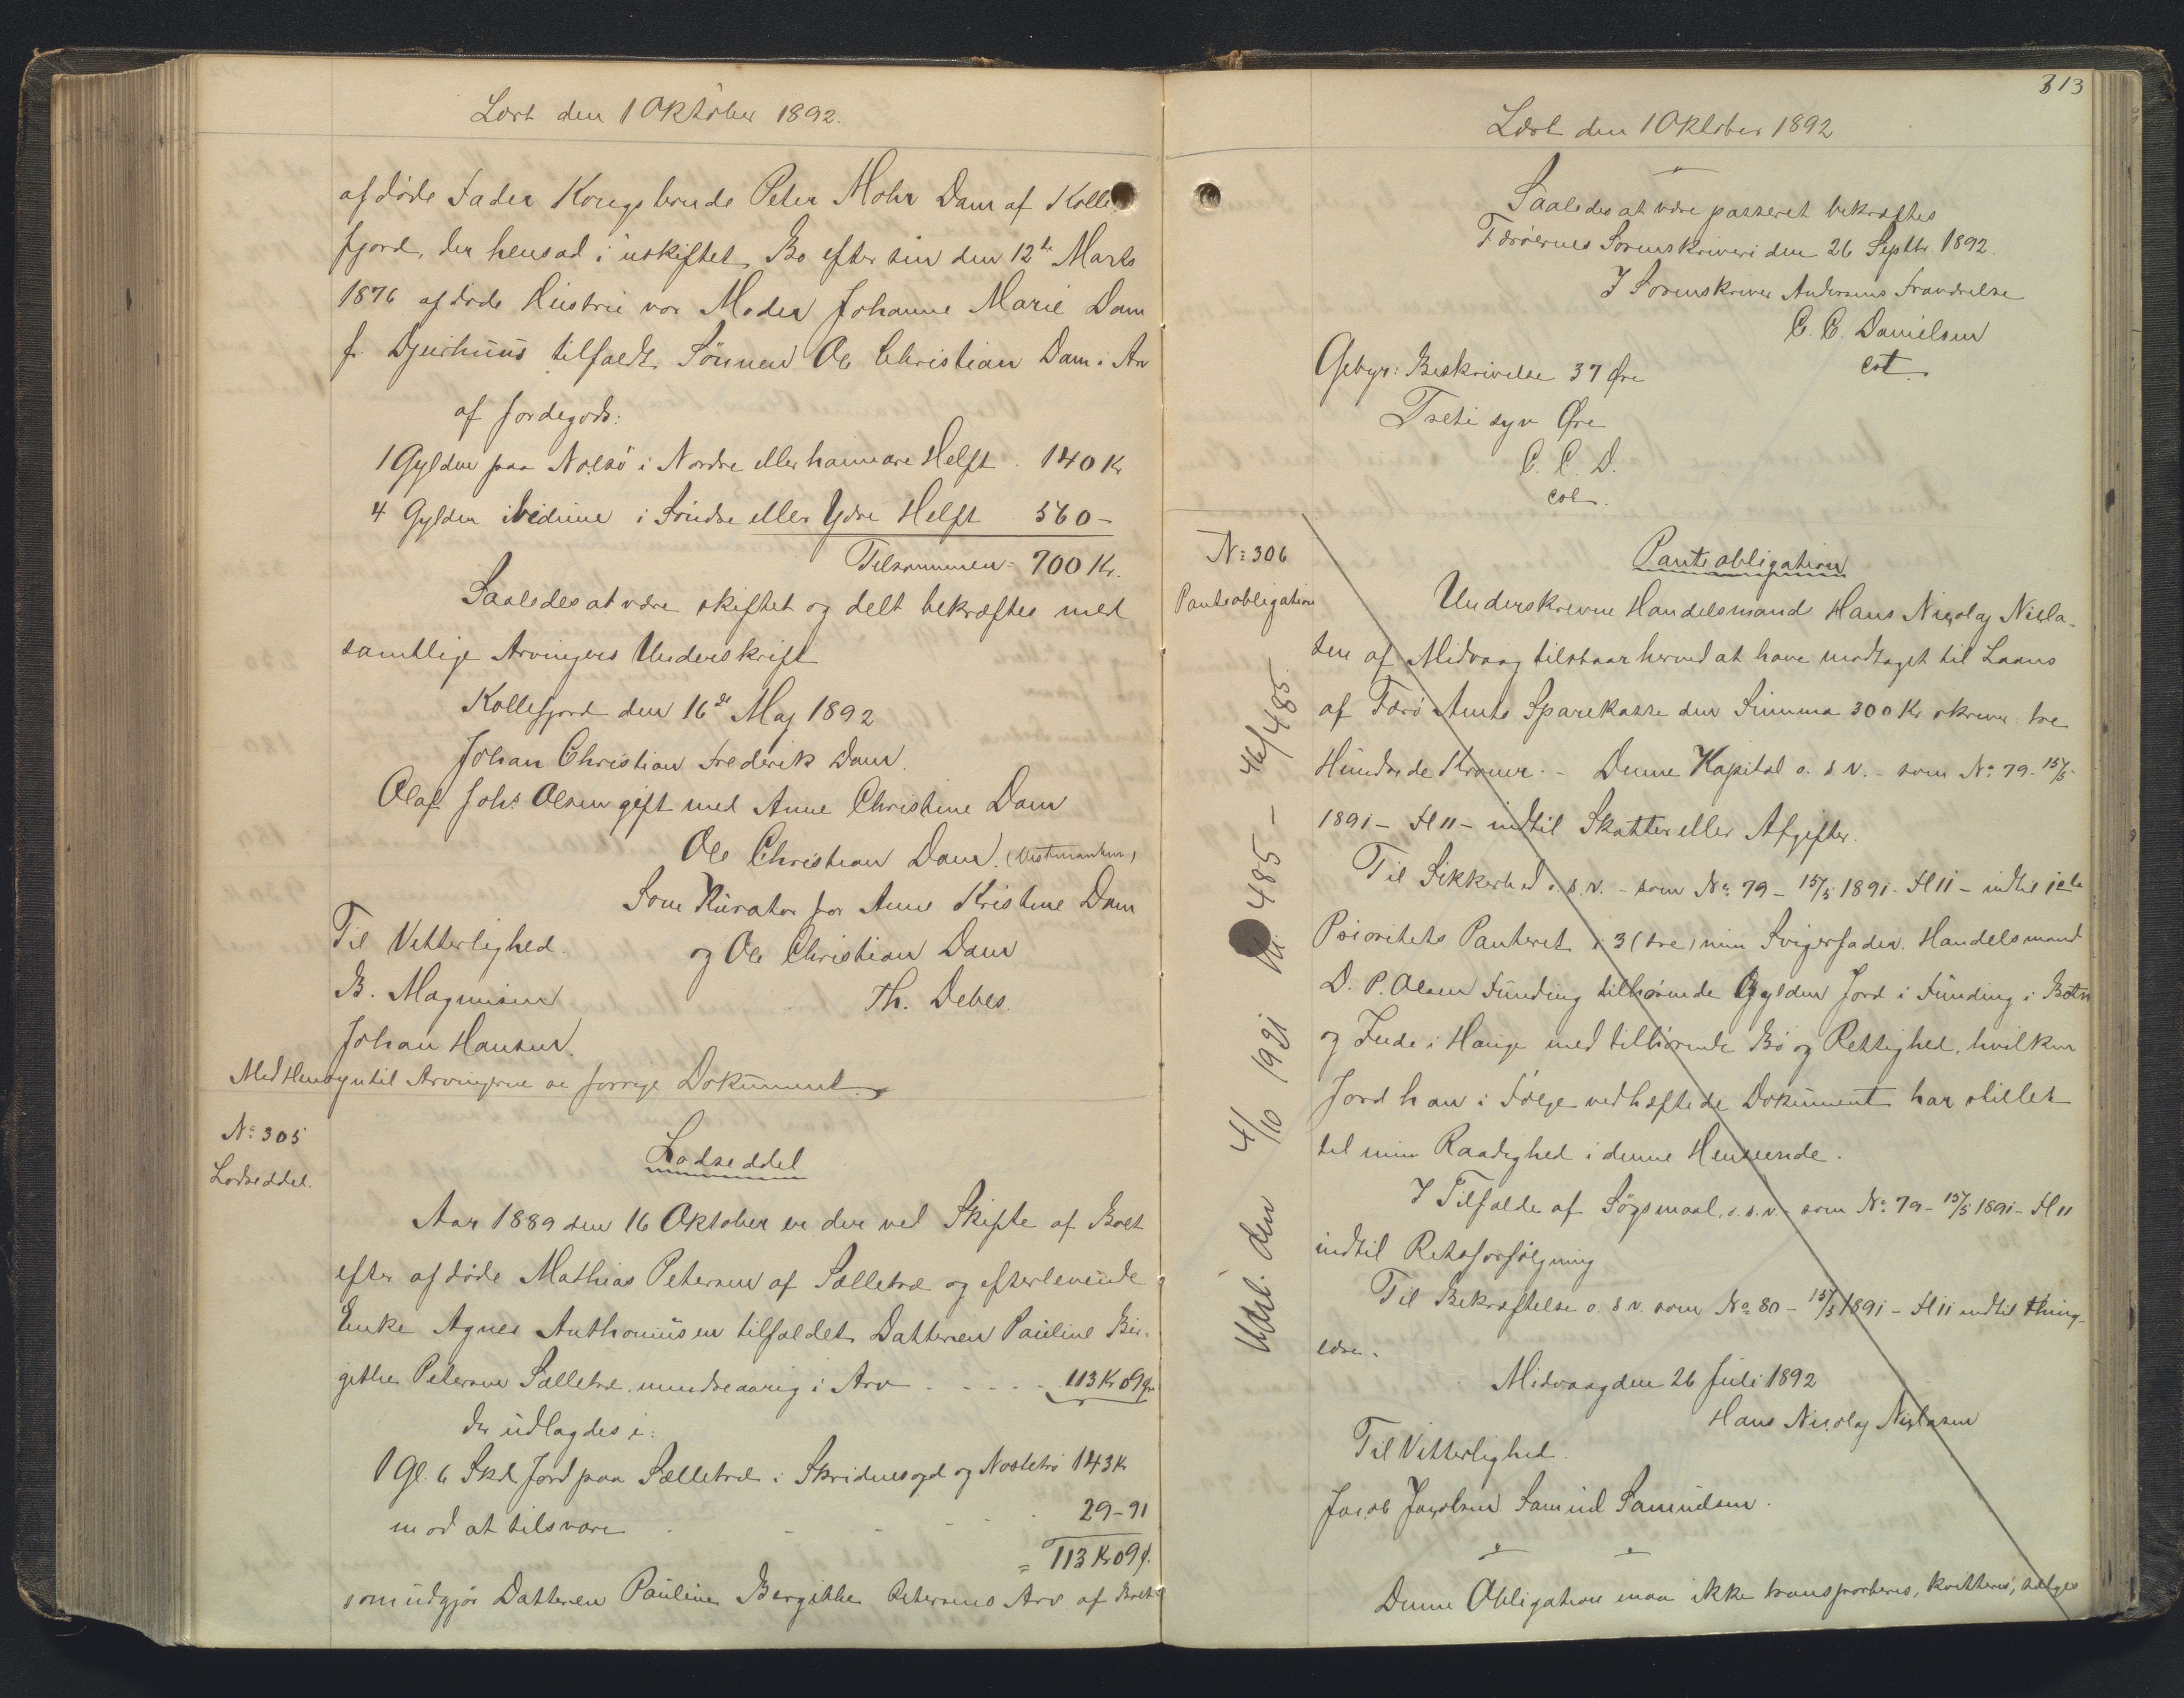 Læst den 1 Oktober 1892.
afdøde Fader Kongsbonde Peter Mohr Dam af Kolle
fjord, der hensad i uskiftet Bo efter sin den 12te Marts
1876 afdøde Hustru vor Moder Johanne Marie Dam
f. Djurhuus tilfaldt Sønnen Ole Christian Dam i Arv
af Jordegods:
1 Gylden paa Nolsö i Nordre eller hannare Helft . 140 Kr
4 Gylden ibidem i Søndre eller Ydre Helft 560 –
Tilsammen = 700 Kr.
Saaledes at være skiftet og delt bekræftes med
samtlige Arvingers Underskrift
Kollefjord den 16de Maj 1892
Johan Christian Frederik Dam.
Olaf Johs Olsen gift med Anne Christine Dam
Ole Christian Dam. (Vestmanhavn)
Som Kurator for Anne Kristine Dam
Til Vitterlighed.
og Ole Christian Dam
B. Magnusen
Th. Debes.
Johan Hansen.
Med Hensyn til Arvingerne se forrige Dokument.
No 305
Lodseddel.
Lodseddel
Aar 1889 den 16 Oktober er der ved Skifte af Boet
efter afdøde Mathias Petersen af Sælletræ og efterlevende
Enke Agnes Anthoniusen tilfaldet Datteren Pauline Bir-
githe Petersen Sælletræ mindreaarig i Arv . . . . . 113 Kr 09 Ør
der udlagdes i:
1 Gl. 6 Skd Jord paa Sælletræ i Skridnesogd og Nostetrö 143 Kr
mod at tilsvare 29–91
= 113 Kr 09 Ø.
som udgjør Datteren Pauline Birgithe Petersens Arv af Boet
313
Læst den 1 Oktober 1892
Saaledes at være passeret bekræftes
Færøernes Sorenskriveri den 26 Septbr. 1892.
I Sorenskriver Andersens Fraværelse
C. C. Danielsen
Gebyr: Beskrivelse 37 Øre
cst.
Treti syv Øre
C. C. D.
cst.
No 306
Pantobligation
Pantobligation
Underskrevne Handelsmand Hans Nicolaj Nicla-
sen af Midvaag tilstaar herved at have modtaget til Laans
af Færø Amts Sparekasse den Summa 300 Kr skriver tre
Hundrede Kroner. – Denne Kapital o. s. v. – som No 79 – 15/5
1891 – H 11 – indtil Skatter eller Afgifter.
Til Sikkerhed o. s. v. – som No 79 – 15/5 1891 – H 11 – indtil 1ste
Prioritets Panteret i 3 (tre) min Svigerfader, Handelsmand
D. P. Olsen Funding tilhørende Gylden Jord i Funding i Botn
og Inde i Hauge med tilhørende Bö og Rettighed, hvilken
Jord han i Følge vedhæftede Dokument har stillet
til min Raadighed i denne Henseende.
I Tilfælde af Søgsmaal, o. s. v. – som No 79 – 15/5 1891 – H 11
indtil Retsforfølgning
Til Bekræftelse o. s. v. som No 80 – 15/5 1891 – H 11 indtil thing-
læse.
Midvaag den 26 Juli 1892
Hans Nicolaj Niclasen
Til Vitterlighed.
Jacob Jacobsen Samuel Samuelsen.
Denne Obligation maa ikke transporteres, kvitteres, sælges
Udsl. den 4/10 1921 485 – 46/485